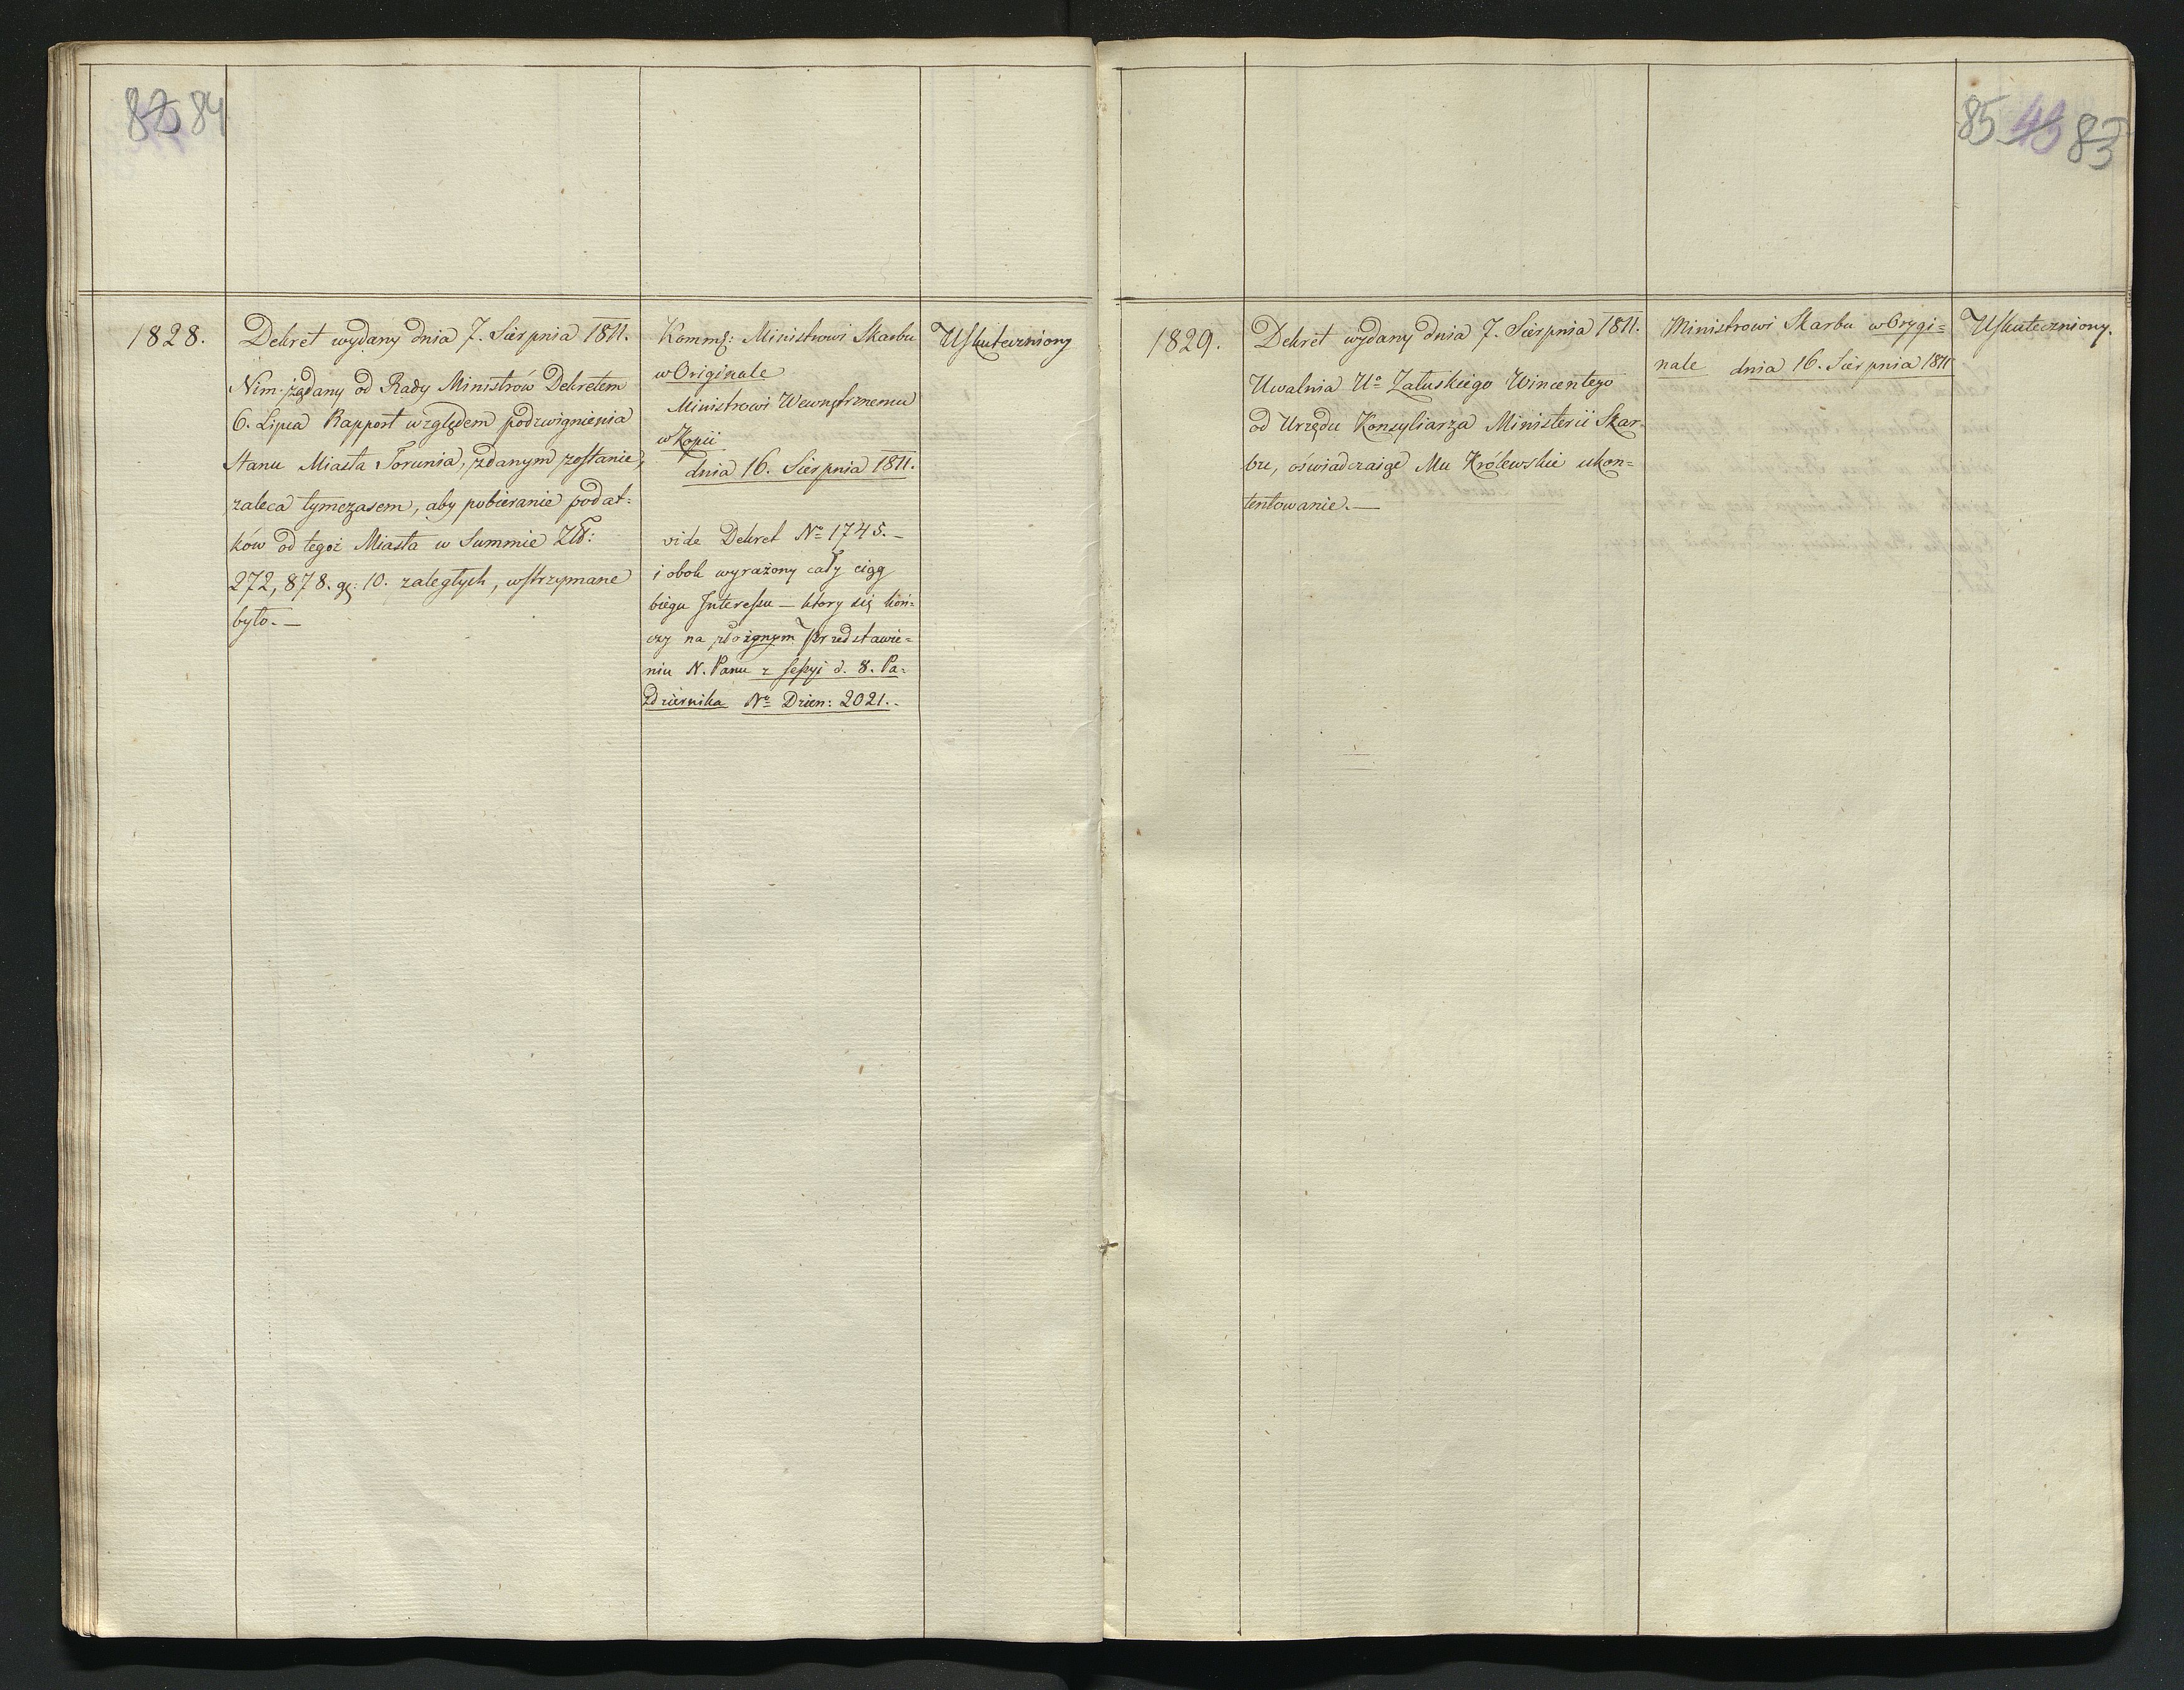 82 84
1828.
Dekret wydany dnia 7. Sierpnia 1811.
Nim żądany od Rady Ministrów Dekretem
6. Lipca Rapport względem podzwignienia
Stanu Miasta Torunia, zdanym zostanie,
zaleca tymczasem, aby pobieranie podat=
ków od tegoż Miasta w Summie Zł:
272,878. gr: 10. zaległych, wstrzymane
było. —
Komms: Ministrowi Skarbu
w Originale
Ministrowi Wewnętrznemu
w Kopii
dnia 16. Sierpnia 1811.
vide Dekret No 1745. —
i obok wyrażony cały ciąg
biegu Interessu — ktory się koń=
czy na Przedstawie=
niu N. Panu z sessyi d. 8. Pa=
zdziernika No Dzien: 2021. -
Uskuteczniony
85 43 83
1829.
Dekret wydany dnia 7. Sierpnia 1811.
Uwalnia Uo Załuskiego Wincentego
od Urzędu Konsyliarza Ministerii Skar=
bu, oświadczaiąc Mu Królewskie ukon=
tentowanie. —
Ministrowi Skarbu w Orygi=
nale dnia 16. Sierpnia 1811
Uskuteczniony.